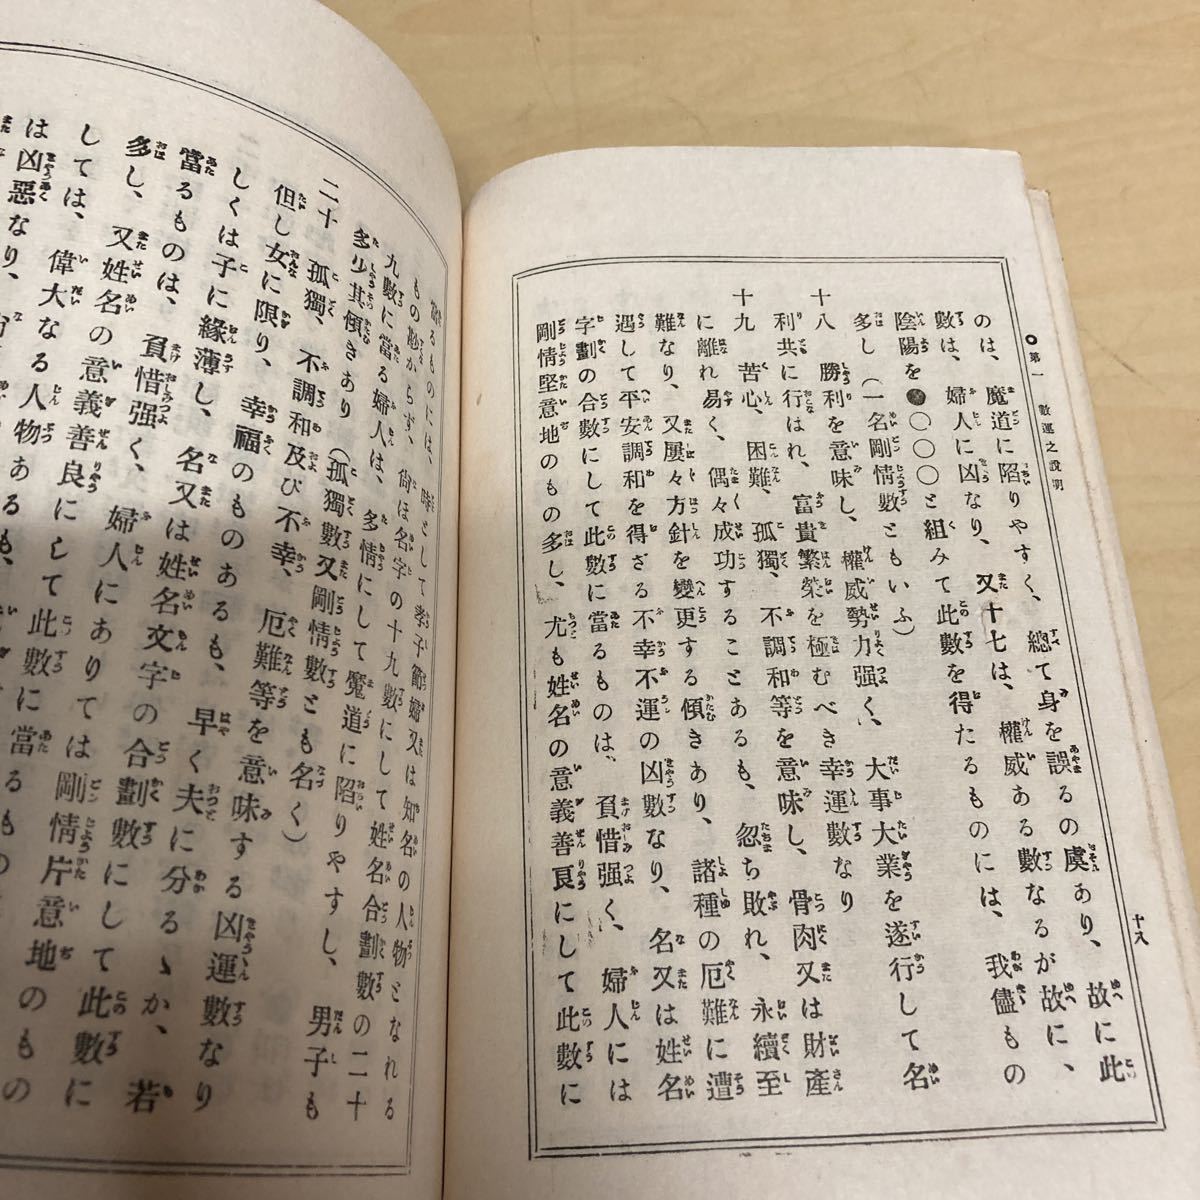 ●第一 數運之說明
十八
のは、魔道に陷りやすく、總て身を誤るの虞あり、故に此
數は、婦人に凶なり、又十七は、權威ある數なるが故に、
陰陽を●〇〇〇と組みて此數を得たるものには、我儘もの
多し(一名剛情數ともいふ)
十八 勝利を意味し、權威勢力强く、大事大業を遂行して名
利共に行はれ、富貴繁榮を極むべき幸運數なり
十九 苦心、困難、孤獨、不調和等を意味し、骨肉又は財產
に離れ易く、偶々成功することあるも、忽ち敗れ、永續至
難なり、又屢々方針を變更する傾きあり、諸種の厄難に遭
遇して平安調和を得ざる不幸不運の凶數なり、名又は姓名
字劃の合數にして此數に當るものは、負惜强く、婦人には
剛情堅意地のもの多し、尤も姓名の意義善良にして此數に
當るものには、時として孝子節婦又は知名の人物となれる
もの尠からず、尙ほ名字の十九數にして姓名合劃數の二十
九數に當る婦人は、多情にして魔道に陷りやすし、男子も
多少其傾きあり(孤獨數又剛情數とも名く)
二十 孤獨、不調和及び不幸、厄難等を意味する凶運數なり
但し女に限り、幸福のものあるも、早く夫に分るゝか、若
しくは子に緣薄し、名又は姓名文字の合劃數にして此數に
當るものは、負惜强く、婦人にありては剛情片意地のもの
多し、又姓名の意義善良にして此數に當るもの
しては、偉大なる人物あるも、
は凶惡なり、